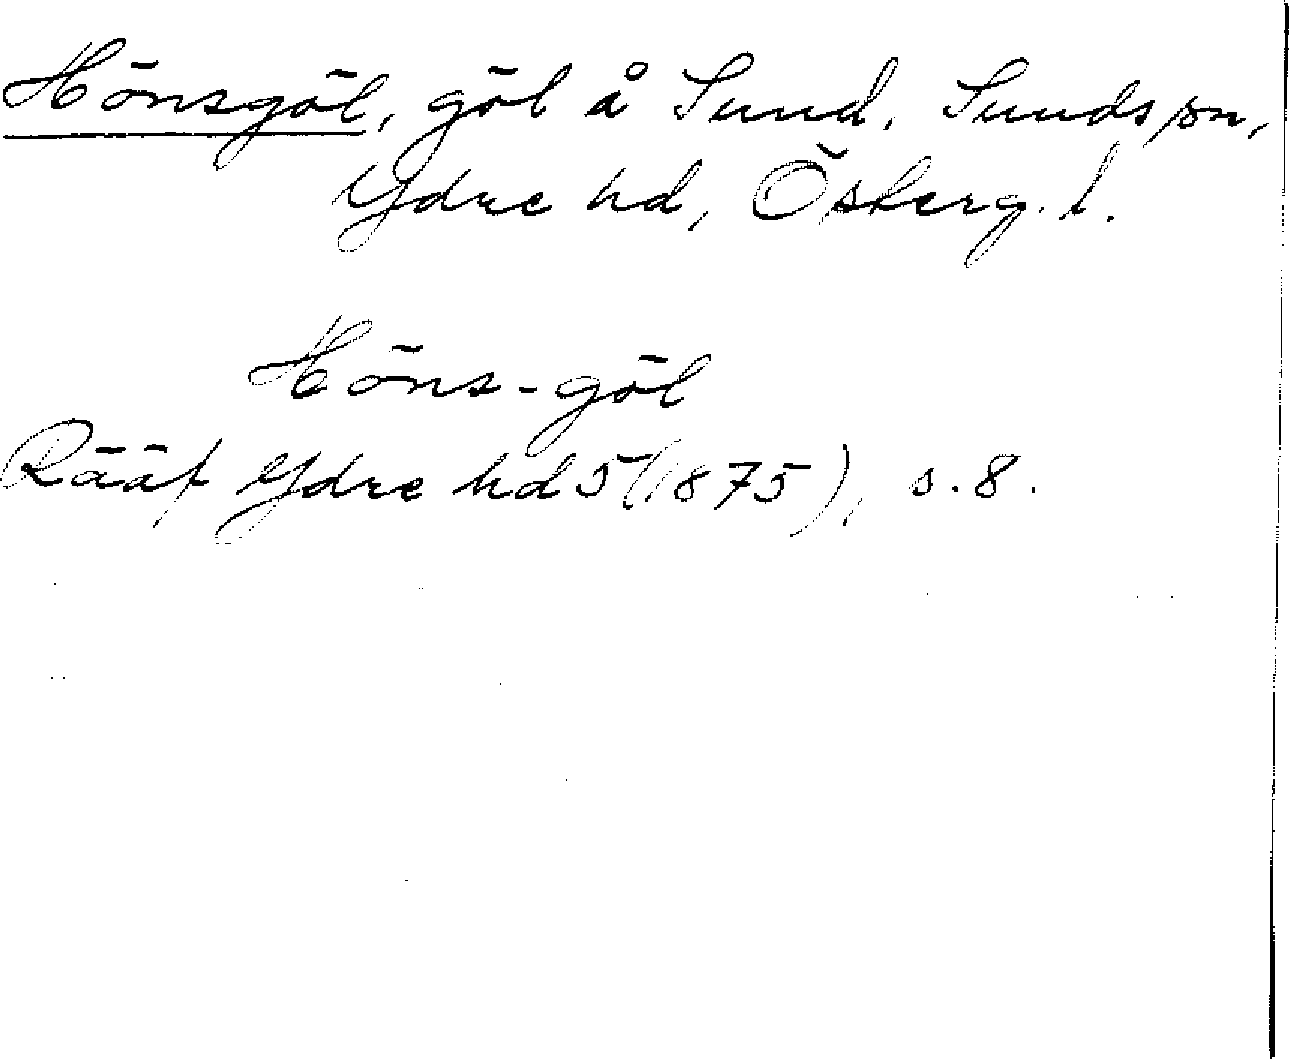 Hönsgöl, göl å Sund, Sunds sn,
Ydre hd, Österg. l.
Höns-göl
Rääf Ydre hd 5 (1875), s. 8.